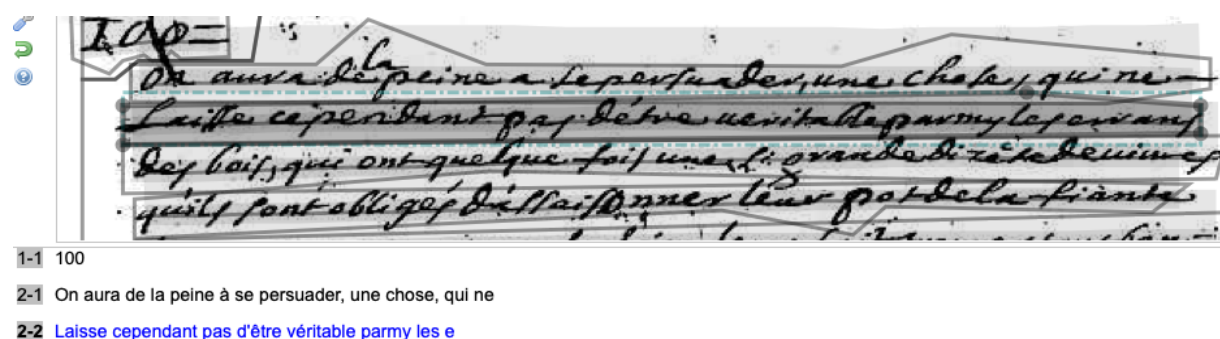 100=
On aura de la peine a se persuader, une chose, qui ne
Laisse cependant pas d'étre veritable parmy les errans
des bois, qui ont quelque fois une si grande dizéte de vivres
quils sont obligés d'assaisonner leur pot de la fiànte
1-1 100
2-1 On aura de la peine à se persuader, une chose, qui ne
2-2 Laisse cependant pas d'être véritable parmy les e